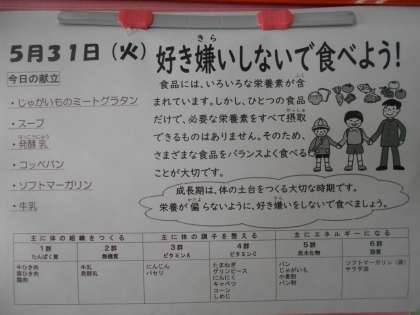 5月31日(火)
好き嫌いしないで食べよう!
きら
今日の献立
・じゃがいものミートグラタン
・スープ
はっこうにゅう
・発酵乳
・コッペパン
・ソフトマーガリン
・牛乳
食品には、いろいろな栄養素が含
まれています。しかし、ひとつの食品
だけで、必要な栄養素をすべて摂取
できるものはありません。そのため、
さまざまな食品をバランスよく食べる
ことが大切です。
成長期は、体の土台をつくる大切な時期です。
栄養が偏らないように、好き嫌いをしないで食べましょう。
主に体の組織をつくる
主に体の調子を整える
主にエネルギーになる
1群 2群 3群 4群 5群 6群
たんぱく質 無機質 ビタミンA ビタミンC 炭水化物 脂質
牛ひき肉
豚ひき肉
鶏肉
牛乳
発酵乳
にんじん
パセリ
たまねぎ
グリンピース
にんにく
キャベツ
コーン
しめじ
パン
じゃがいも
小麦粉
パン粉
ソフトマーガリン(袋)
サラダ油